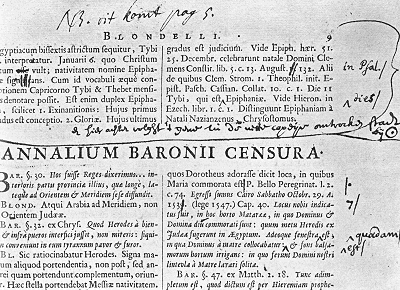 NB. dit komt pag 5.
BLONDELLI.
9
egyptiacum bissextis astrictum sequitur, Tybi
interpretatur. Januarii 6. quo Christum
cum vult; nativitatem nomine Epipha-
significari. Cum id vocabuli æque con-
ntionum Capricorno Tybi & Thebet mensi-
denotare possit. Est enim duplex Epipha-
scilicet 1. Exinanitionis: Hujus primus
dus est conceptio. 2. Gloriæ. Hujus ultimus
gradus est judicium. Vide Epiph. hær. 51.
25. Decembr. celebrarunt natale Domini Clemens
Constit. lib. 5. c. 13. August. 132. Alii
de quibus Clem. Strom. 1. Theophil. init. E-
pist. Pasch. Cassian. Collat. 10. c. 1. Die 11
Tybi, qui est Epiphaniæ. Vide Hieron. in
Ezech. libr. 1. c. 1. Distinguunt Epiphaniam à
Natali Nazianzenus Chrysostomus.
in Psal.
dies
ANNALIUM BARONII CENSURA.
BAR. §. 30. Hos fuisse Reges dixerimus...
interioris partis provinciæ illius, quæ longè, la-
teque ad Orientem & Meridiem sese diffundit.
BLOND. Atqui Arabia ad Meridiem, non
Orientem Judææ.
BAR. §. 32. ex Chrys. Quod Herodes à bien-
& infra pueros interfici jussit, non miteris:
conveniunt in eum tyrannum pavor & furor.
BL. Sic ratiocinabatur Herodes. Signa ma-
um aliquod portendentia, non post, sed an-
quam portendunt complementum, oriuntur,
Hæc stella portendebat Messiæ nativitatem.
quos Dorotheus adorasse dicit loca, in quibus
Maria commorata est P. Bello Peregrinat. l. 2.
c. 74. Egressi sumus Cairo Sabbatho Octobr. 29.
153. (lege 1547.) Cap. 40. Locus nobis indica-
tus fuit, in hoc horto Mataræ, in quo Dominus &
Domina diu commorati sunt: quum metu Herodis ex
Judæa fugerant in Ægyptum. Adeoque fenestra est,
in qua Dominus à matre collocabatur fons balsa-
morum horum irrigans: in quo ferunt Domini nostri
linteola à Matre lavari solita.
BAR. §. 47. ex Matth. 2. 18. Tunc adim-
pletum est, quod dictum est per Hieremiam prophe-
quædam